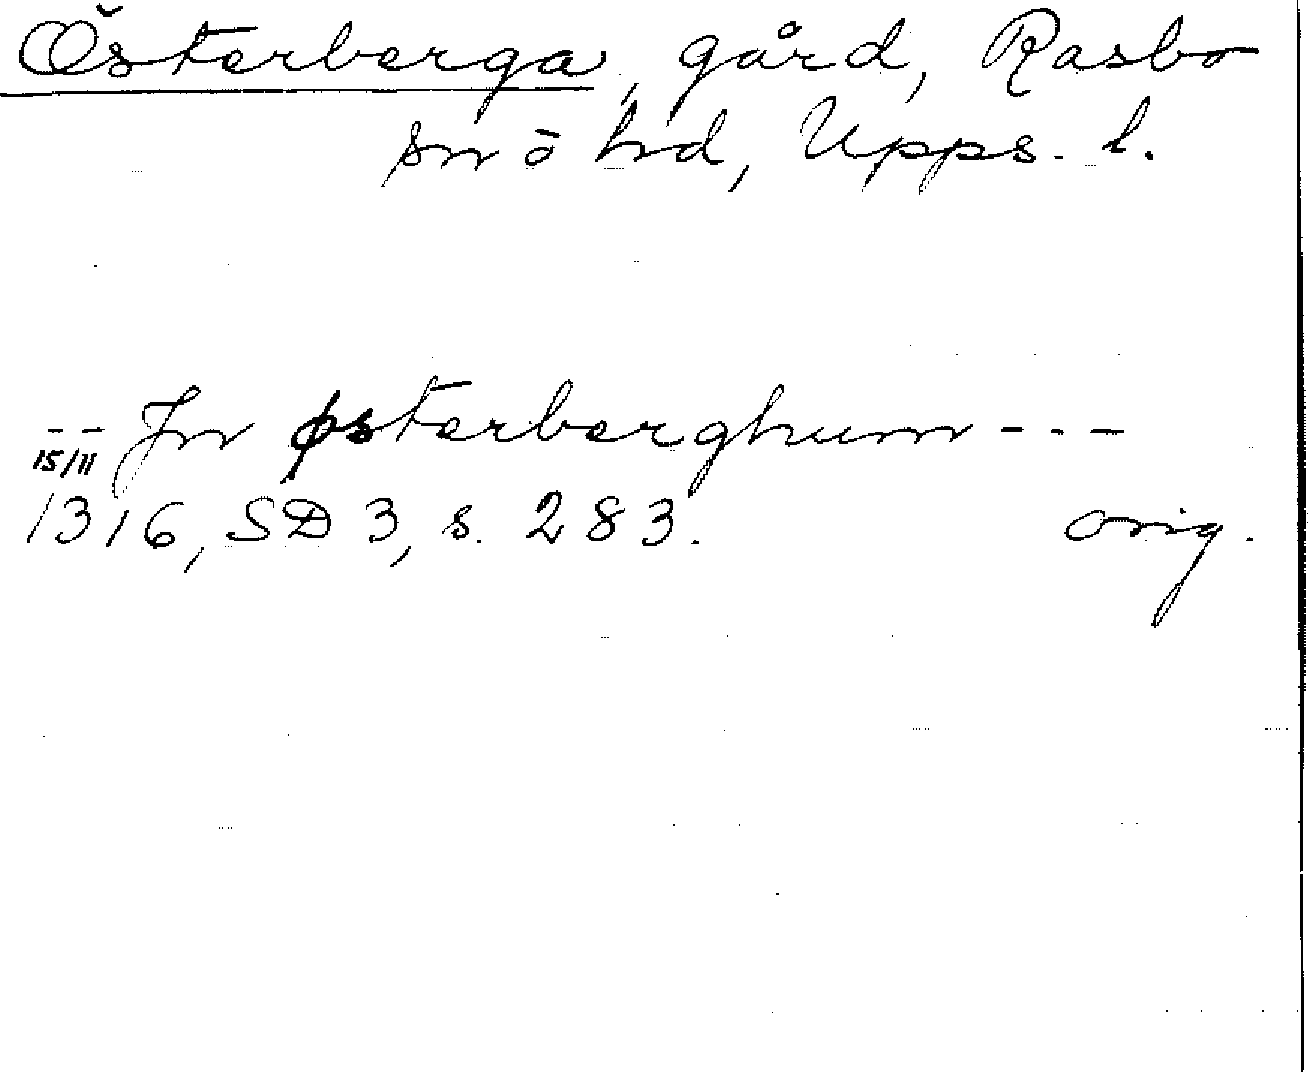 Österberga, gård, Rasbo
sn o hd, Upps. l.
-- Jn østerberghum ---
15/11
1316, SD 3, s. 283. orig.